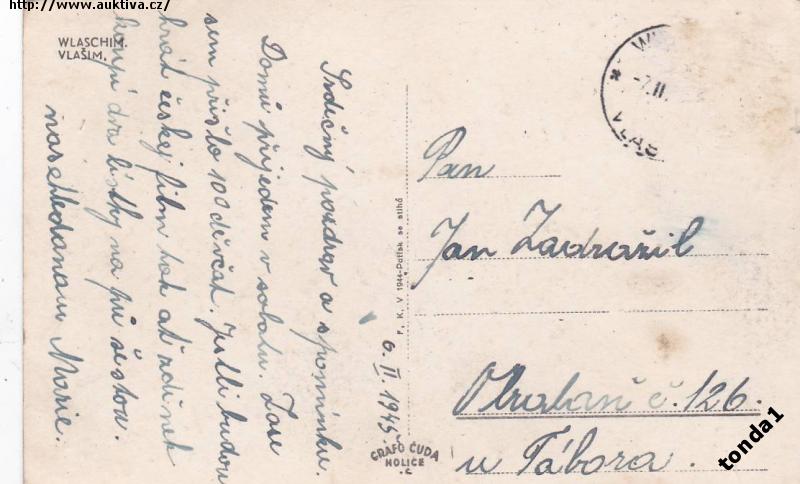 http://www.auktiva.cz/
WLASCHIM.
VLAŠIM.
Srdečný pozdrav a spomínku.
Domů přijedem v sobotu. Zas
sem přišlo 100 děvčat. Jestli budou
hrát českej film tak ať
koupí dva lístky na půl šestou.
nashledanou Marie.
6. II. 1945.
F. K. V 1944-Potisk se stíhá
GRAFO ČUDA
HOLICE
-7.II.
VLAŠ
Pan
Jan Zadražil
č. 126.
u Tábora.
tonda1